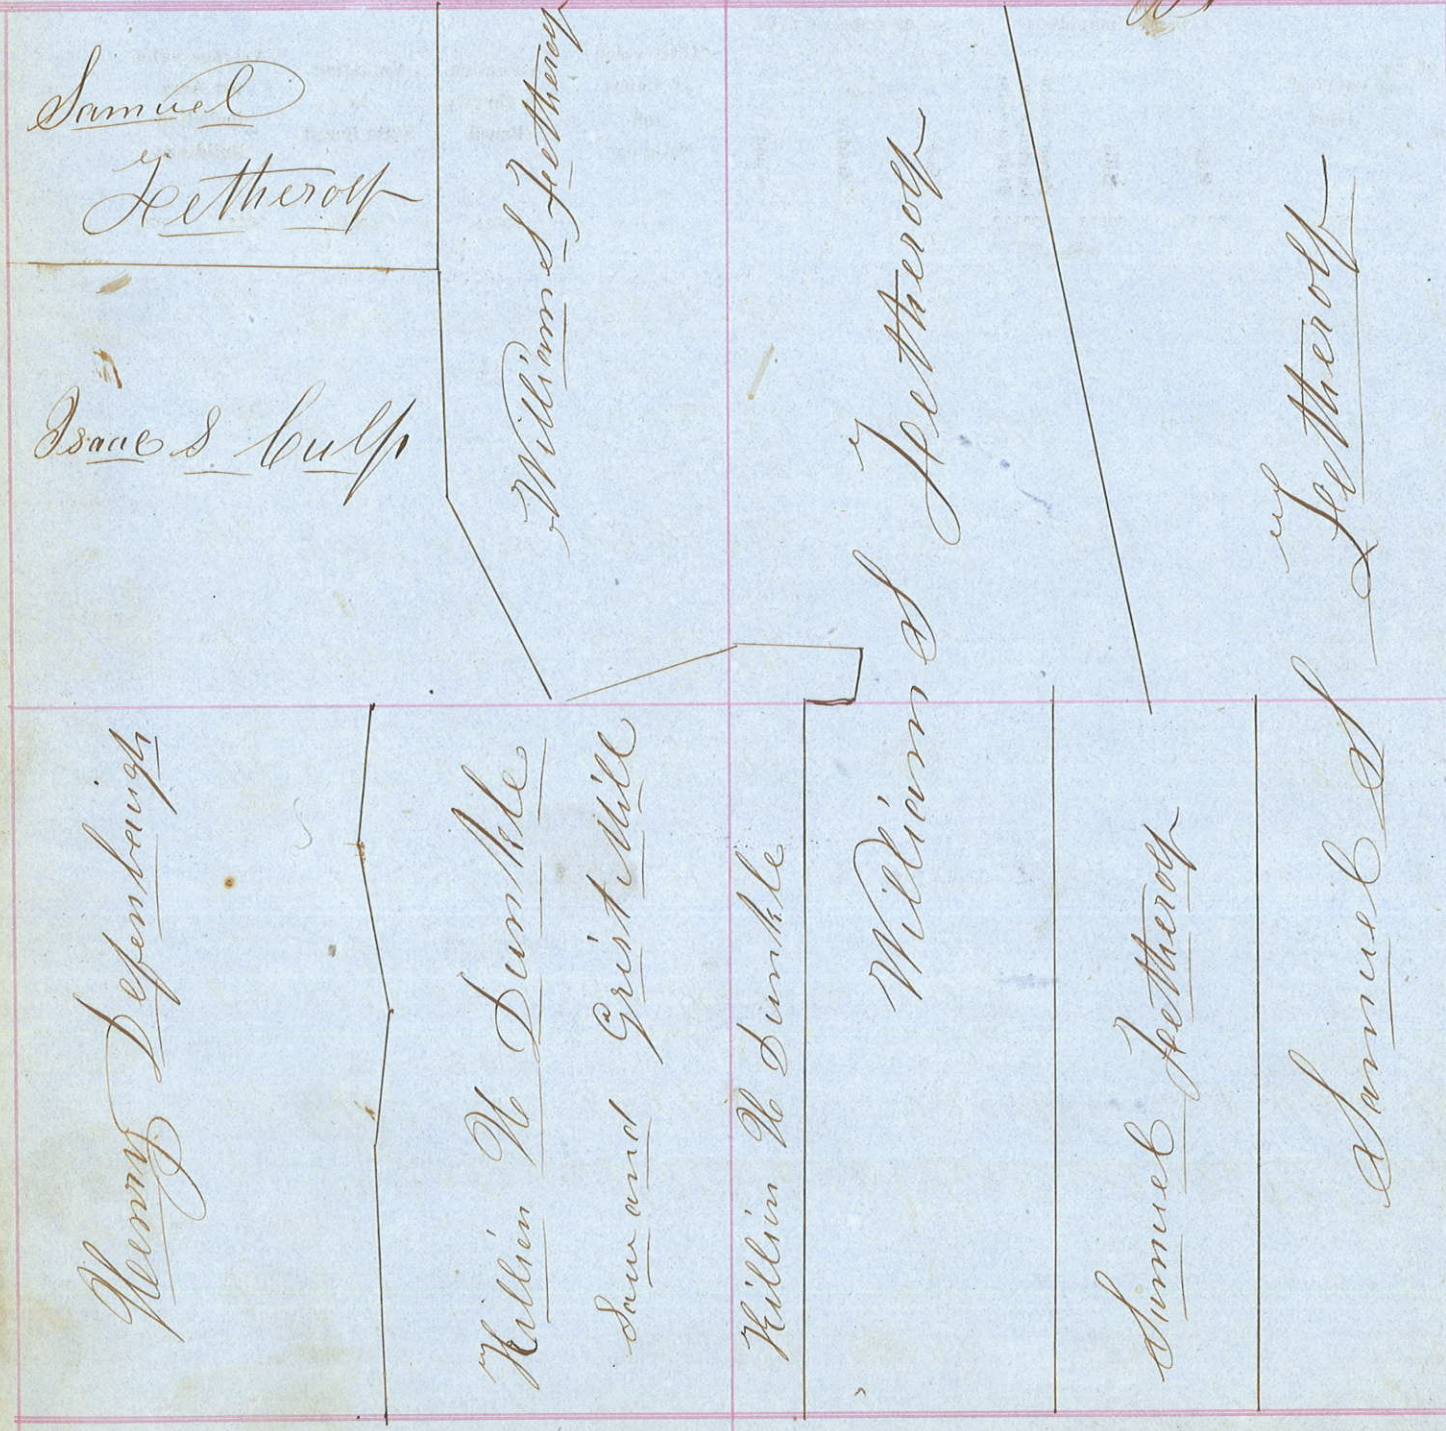 Samuel
Fetherolf
William S Fetherolf
William S Fetherolf
Samuel S Fetherolf
Isaac S. Culp
Henry Defenbaugh
Killian H Dunkle
Saw and Grist Mill
Killian H Dunkle
Samuel Fetherolf